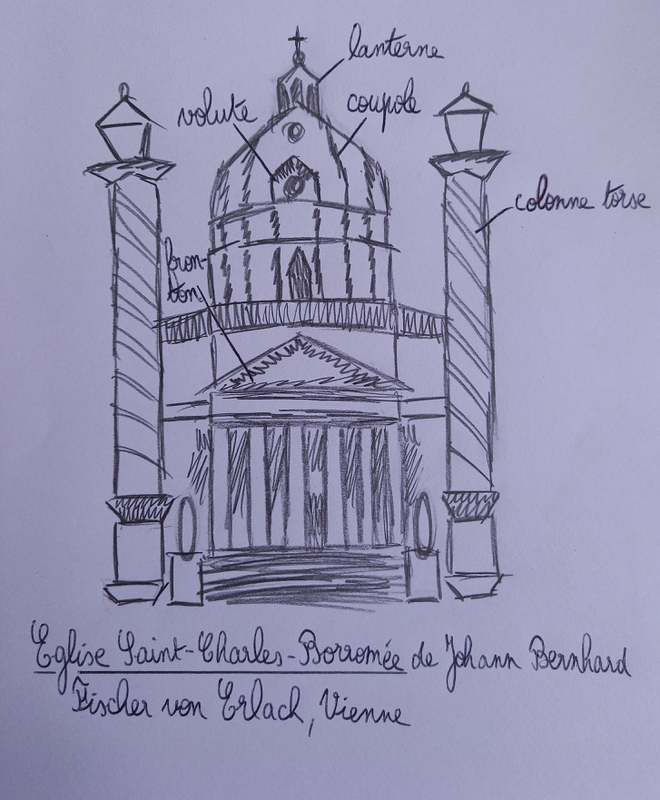 lanterne
volute
coupole
colonne torse
fron-
ton
Eglise Saint-Charles-Borromée de Johann Bernhard
Fischer von Erlach, Vienne